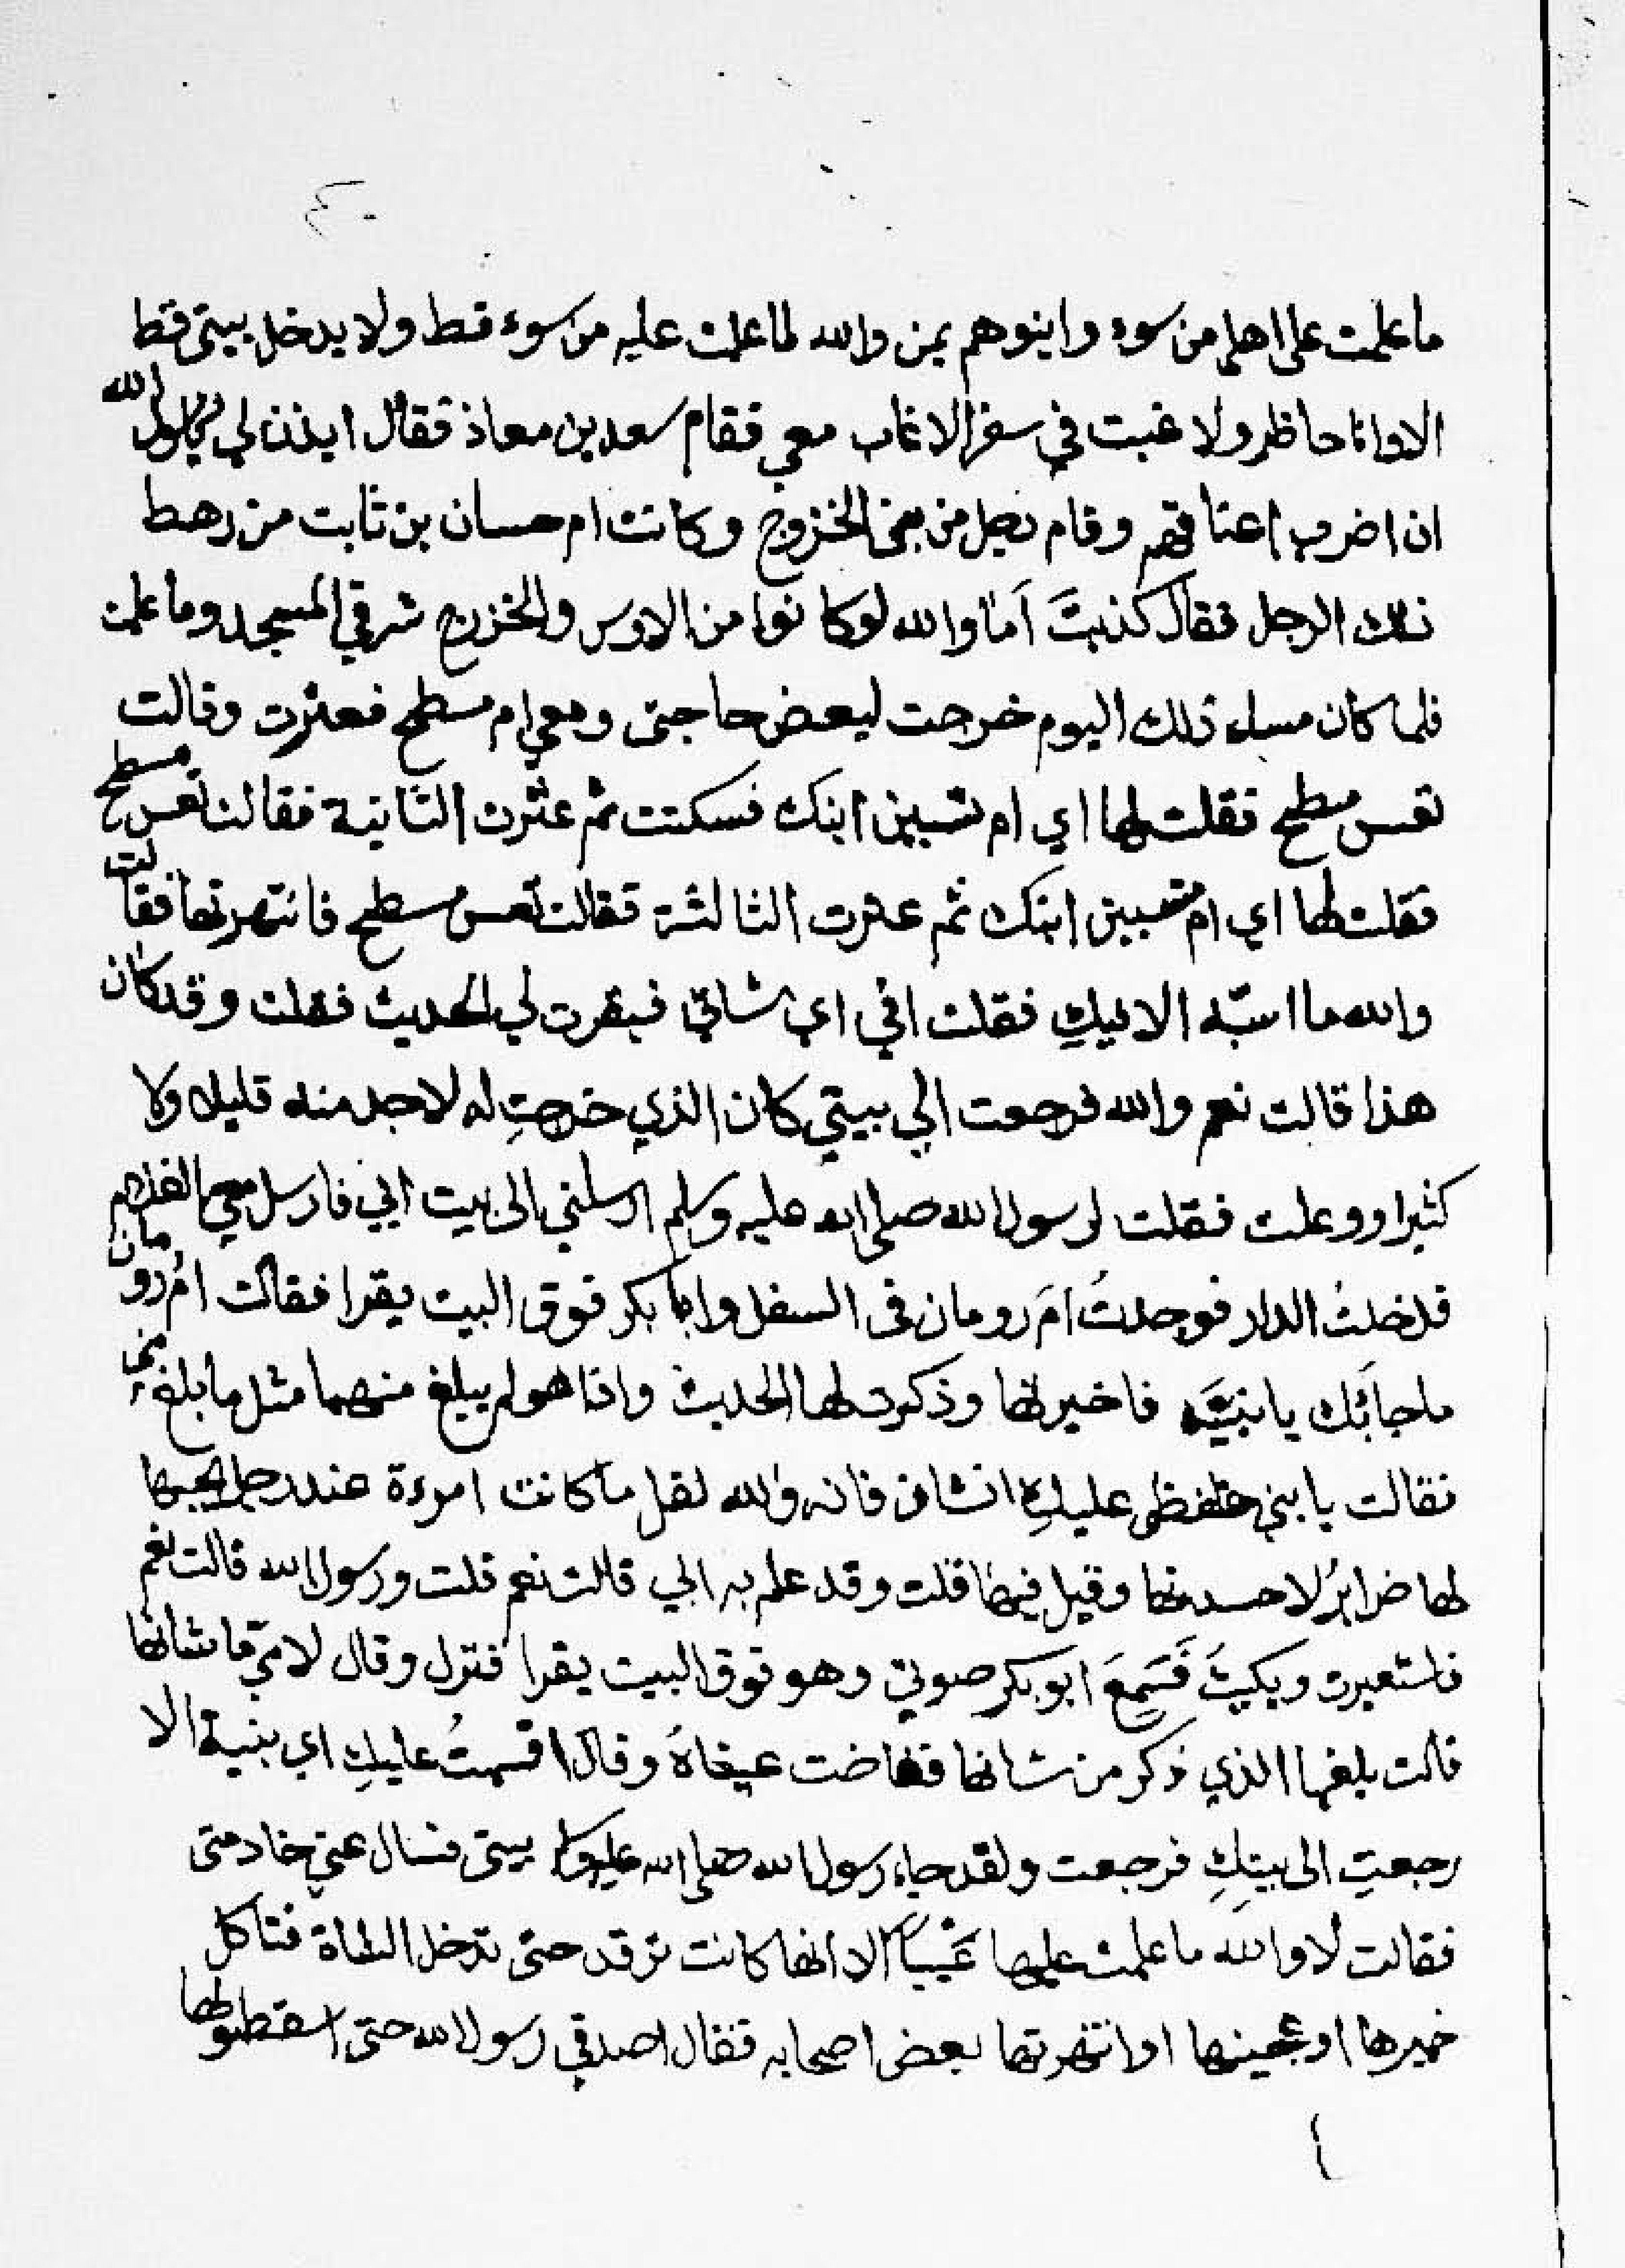 ما علمت على اهلي من سوء وابنوهم بمن والله لما علمت عليه من سوء قط ولا يدخل بيتي قط
الا وانا حاظر ولا غبت في سفر الا غاب معي فقام سعد بن معاذ فقال ايذن لي يرسول الله
ان اضرب اعناقهم وقام رجل من بني الخزرج وكانت ام حسان بن ثابت من رهط
ذلك الرجل فقال كذبتَ اَما والله لو كانوا من الاوس والخزرج شر في المسجد وما علمت
فلما كان مساء ذلك اليوم خرجت لبعض حاجتي ومعي ام مسطح فعثرت وقالت
تعس مسطح فقلت لها اي ام تسبين ابنك فسكتت ثم عثرت الثانية فقالت تعس مسطح
فقلت لها اي ام تسبين ابنك ثم عثرت الثالثة فقالت تعس مسطح فانتهرتها فقالت
والله ما اسبّه الا فيكِ فقلت في اي شاني فبقرت لي الحديث فقلت وقد كان
هذا قالت نعم والله فرجعت الي بيتي كان الذي خرجتِ له لا اجد منه قليلا ولا
كثيرا ووعكت فقلت لرسول الله صلى الله عليه وسلم ارسلني الى بيت ابي فارسل معي الغلام
فدخلتُ الدار فوجدتُ امَ رومان في السفل وابا بكر فوق البيت يقرا فقالت امُ رومان
ما جابَك يا بنيَّه فاخبرتها وذكرت لها الحديث واذا هو لم يبلغ منهما مثل ما بلغ مني
فقالت يا بني خفظي عليكِ الشان فانه والله لقل ما كانت امرءة عند رجل يحبها
لها ضرايرُ الا حسدنها وقيل فيها قلت وقد علم به ابي قالت نعم قلت ورسول الله قالت نعم
فاستعبرت وبكيتُ فَسَمِعَ ابو بكر صوتي وهو فوق البيت يقرا فنزل وقال لامّي ما شانها
قالت بلغها الذي ذكر من شانها ففاضت عيناهَ وقال اقسمتُ عليكِ اي بنية الا
رجعتِ الى بيتِكِ فرجعت ولقد جاء رسول الله صلى الله عليه وسلم بيتي فسال عني خادمتي
فقالت لا والله ما علمت عليها عَيْباً الا انها كانت ترقد حتى تدخل الشاة فتاكل
خميرها او عجينها او انتهرتها بعض اصحابه فقال اصدقي رسول الله حتى اسقطوا لها